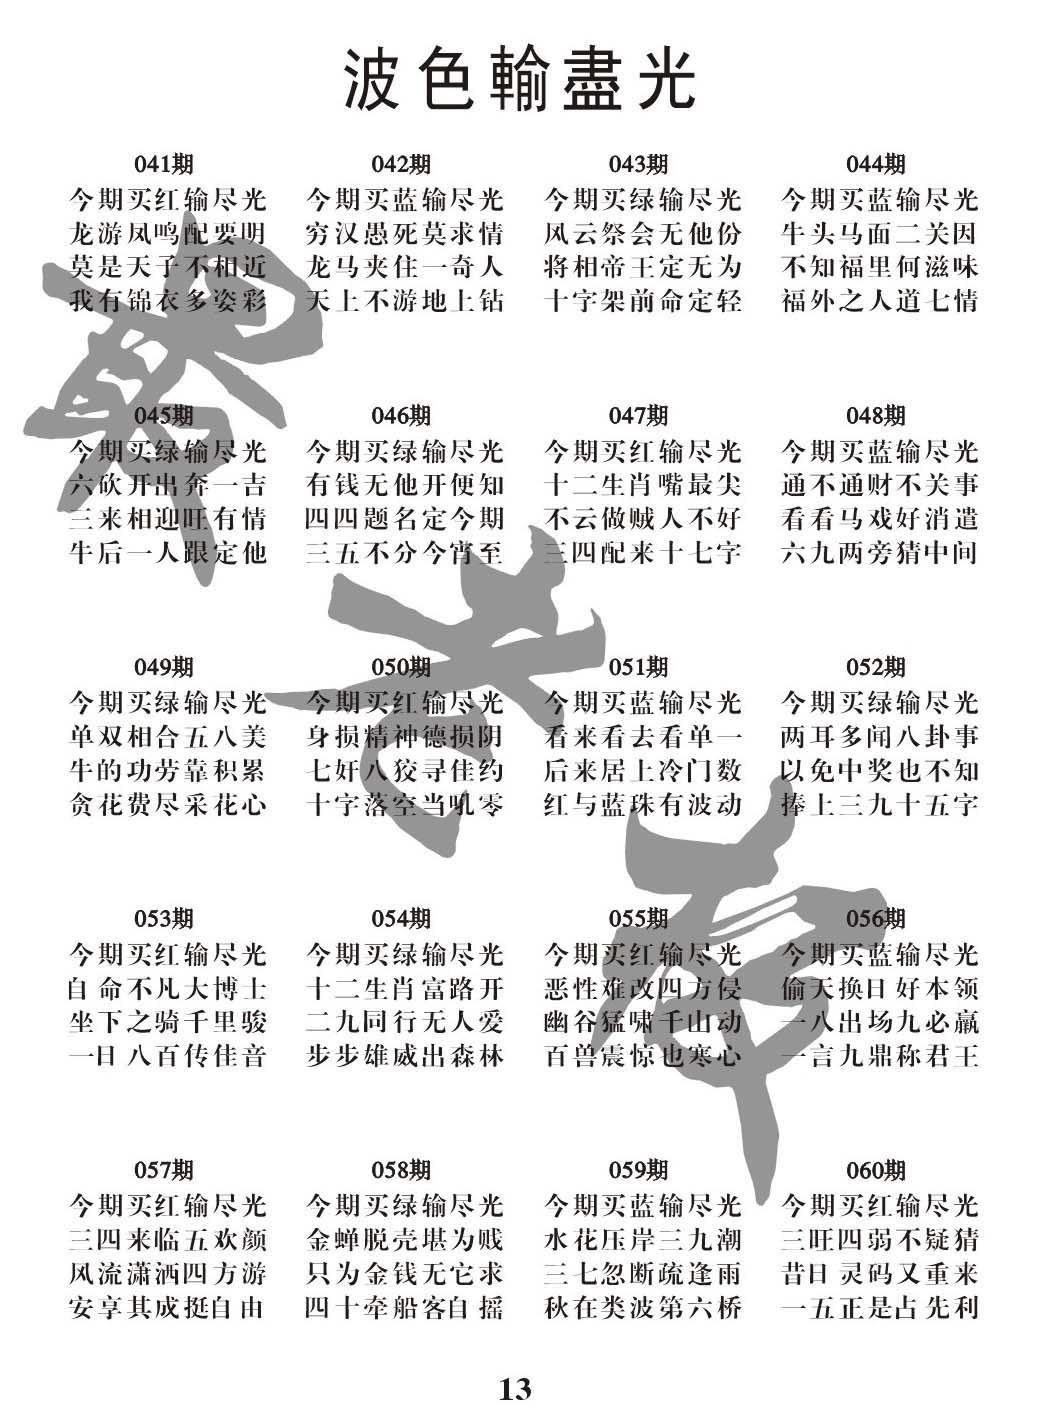 波色輸盡光
041期
今期买红输尽光
龙游凤鸣配要明
莫是天子不相近
我有锦衣多姿彩
042期
今期买蓝输尽光
穷汉愚死莫求情
龙马夹住一奇人
天上不游地上钻
043期
今期买绿输尽光
风云祭会无他份
将相帝王定无为
十字架前命定轻
044期
今期买蓝输尽光
牛头马面二关因
不知福里何滋味
福外之人道七情
045期
今期买绿输尽光
六砍开出奔一吉
三来相迎旺有情
牛后一人跟定他
046期
今期买绿输尽光
有钱无他开便知
四四题名定今期
三五不分今宵至
047期
今期买红输尽光
十二生肖嘴最尖
不云做贼人不好
三四配来十七字
048期
今期买蓝输尽光
通不通财不关事
看看马戏好消遣
六九两旁猜中间
049期
今期买绿输尽光
单双相合五八美
牛的功劳靠积累
贪花费尽采花心
050期
今期买红输尽光
身损精神德损阴
七奸八狡寻佳约
十字落空当吼零
051期
今期买蓝输尽光
看来看去看单一
后来居上冷门数
红与蓝珠有波动
052期
今期买绿输尽光
两耳多闻八卦事
以免中奖也不知
捧上三九十五字
053期
今期买红输尽光
自命不凡大博士
坐下之骑千里骏
一日八百传佳音
054期
今期买绿输尽光
十二生肖富路开
二九同行无人爱
步步雄威出森林
055期
今期买红输尽光
恶性难改四方侵
幽谷猛啸千山动
百兽震惊也寒心
056期
今期买蓝输尽光
偷天换日好本领
一八出场九必赢
一言九鼎称君王
057期
今期买红输尽光
三四来临五欢颜
风流潇洒四方游
安享其成挺自由
058期
今期买绿输尽光
金蝉脱壳堪为贱
只为金钱无它求
四十牵船客自摇
059期
今期买蓝输尽光
水花压岸三九潮
三七忽断疏逢雨
秋在类波第六桥
060期
今期买红输尽光
三旺四弱不疑猜
昔日灵码又重来
一五正是占先利
13